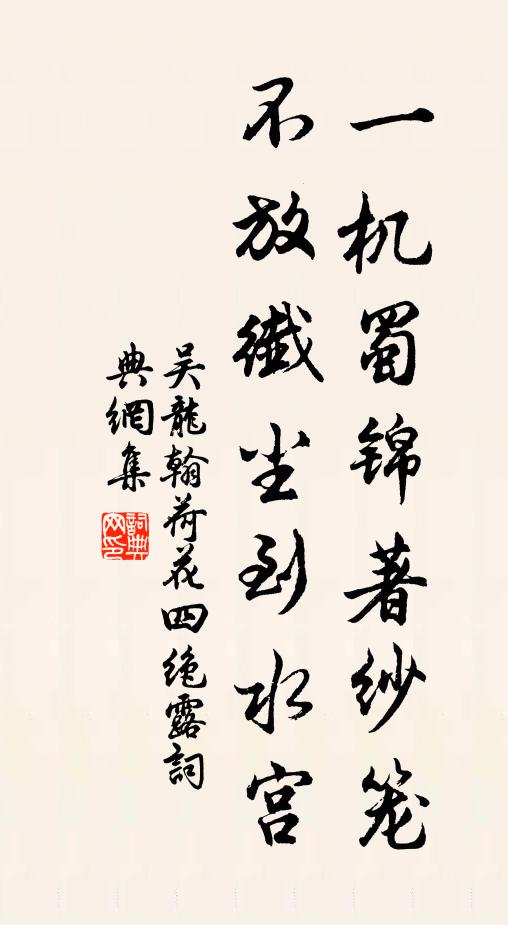 一机蜀锦著纱笼
不放纖尘到水宫
吴龍翰荷花四绝露詞
典網集
詞典
网印